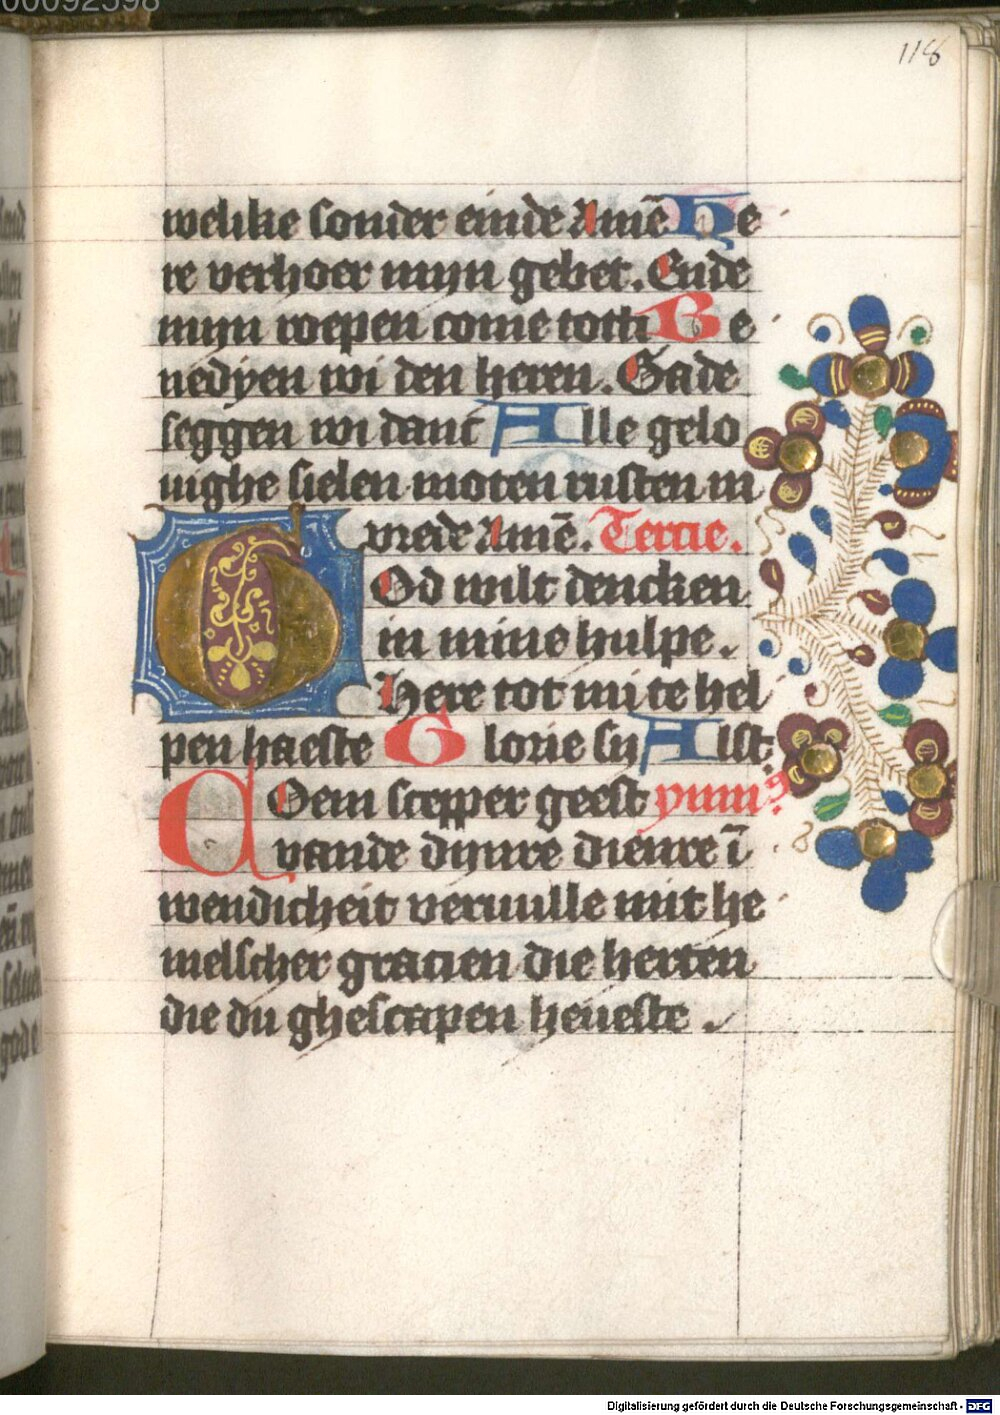 00092598
118
welike sonder einde Amē He
re verhoer myn gebet. Ende
myn roepen come totti Be
nedyen wi den heren. Gade
seggen wi danc Alle gelo
uighe sielen moten rusten in
vrede Amē. Tercie.
God wilt dencken
in mine hulpe.
Here tot mi te hel
pen haeste Glorie sy Alst
Coem scepper geest ymnꝰ
vande dynre dienre ī
wendicheit vervulle mit he
melscher gracien die herten
die du ghescapen heueste.
Digitalisierung gefördert durch die Deutsche Forschungsgemeinschaft - DFG